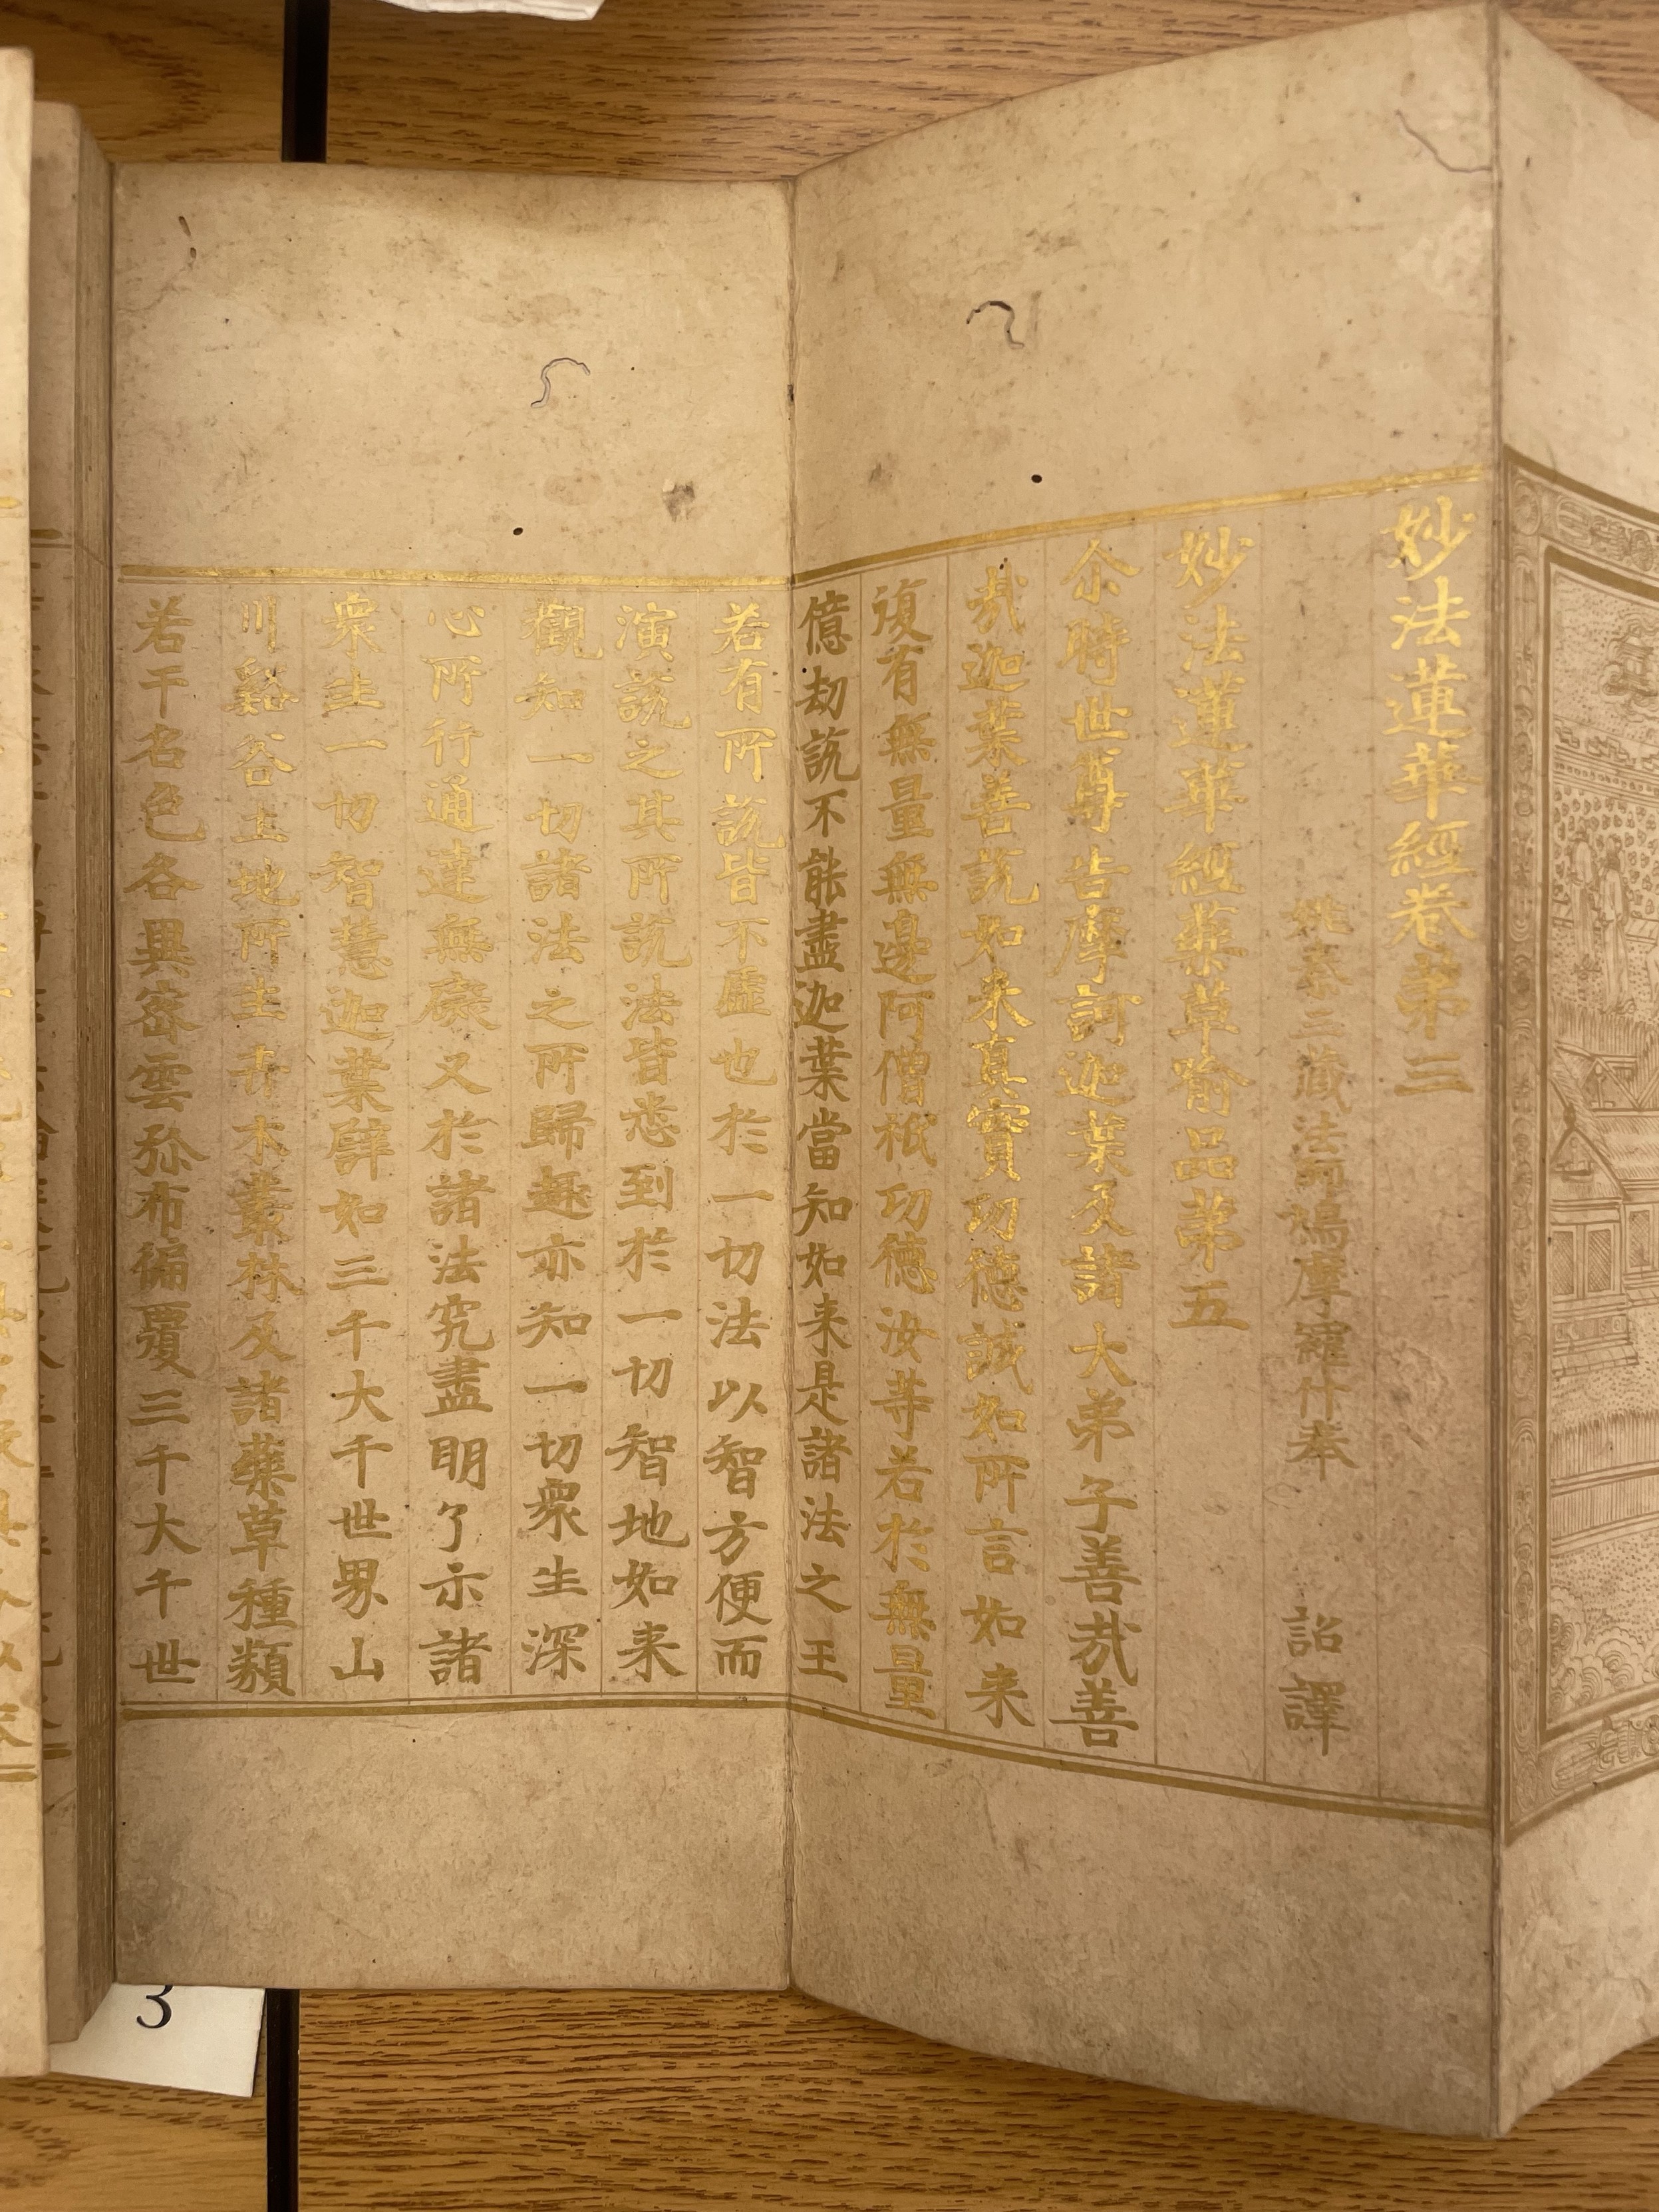 妙法蓮華經卷苐三
姚秦三藏法師鳩摩羅什奉　詔譯
妙法蓮華經藥草喻品苐五
尒時世尊告摩訶迦葉及諸大弟子善哉善
哉迦葉善說如来真實功德誠如所言如来
復有無量無邊阿僧祇功德汝等若於無量
億劫說不能盡迦葉當知如来是諸法之王
若有所說皆不虛也於一切法以智方便而
演說之其所說法皆悉到於一切智地如来
觀知一切諸法之所歸趣亦知一切衆生深
心所行通達無礙又於諸法究盡明了示諸
衆生一切智慧迦葉譬如三千大千世界山
川谿谷土地所生卉木叢林及諸藥草種類
若干名色各異密雲弥布徧覆三千大千世
3